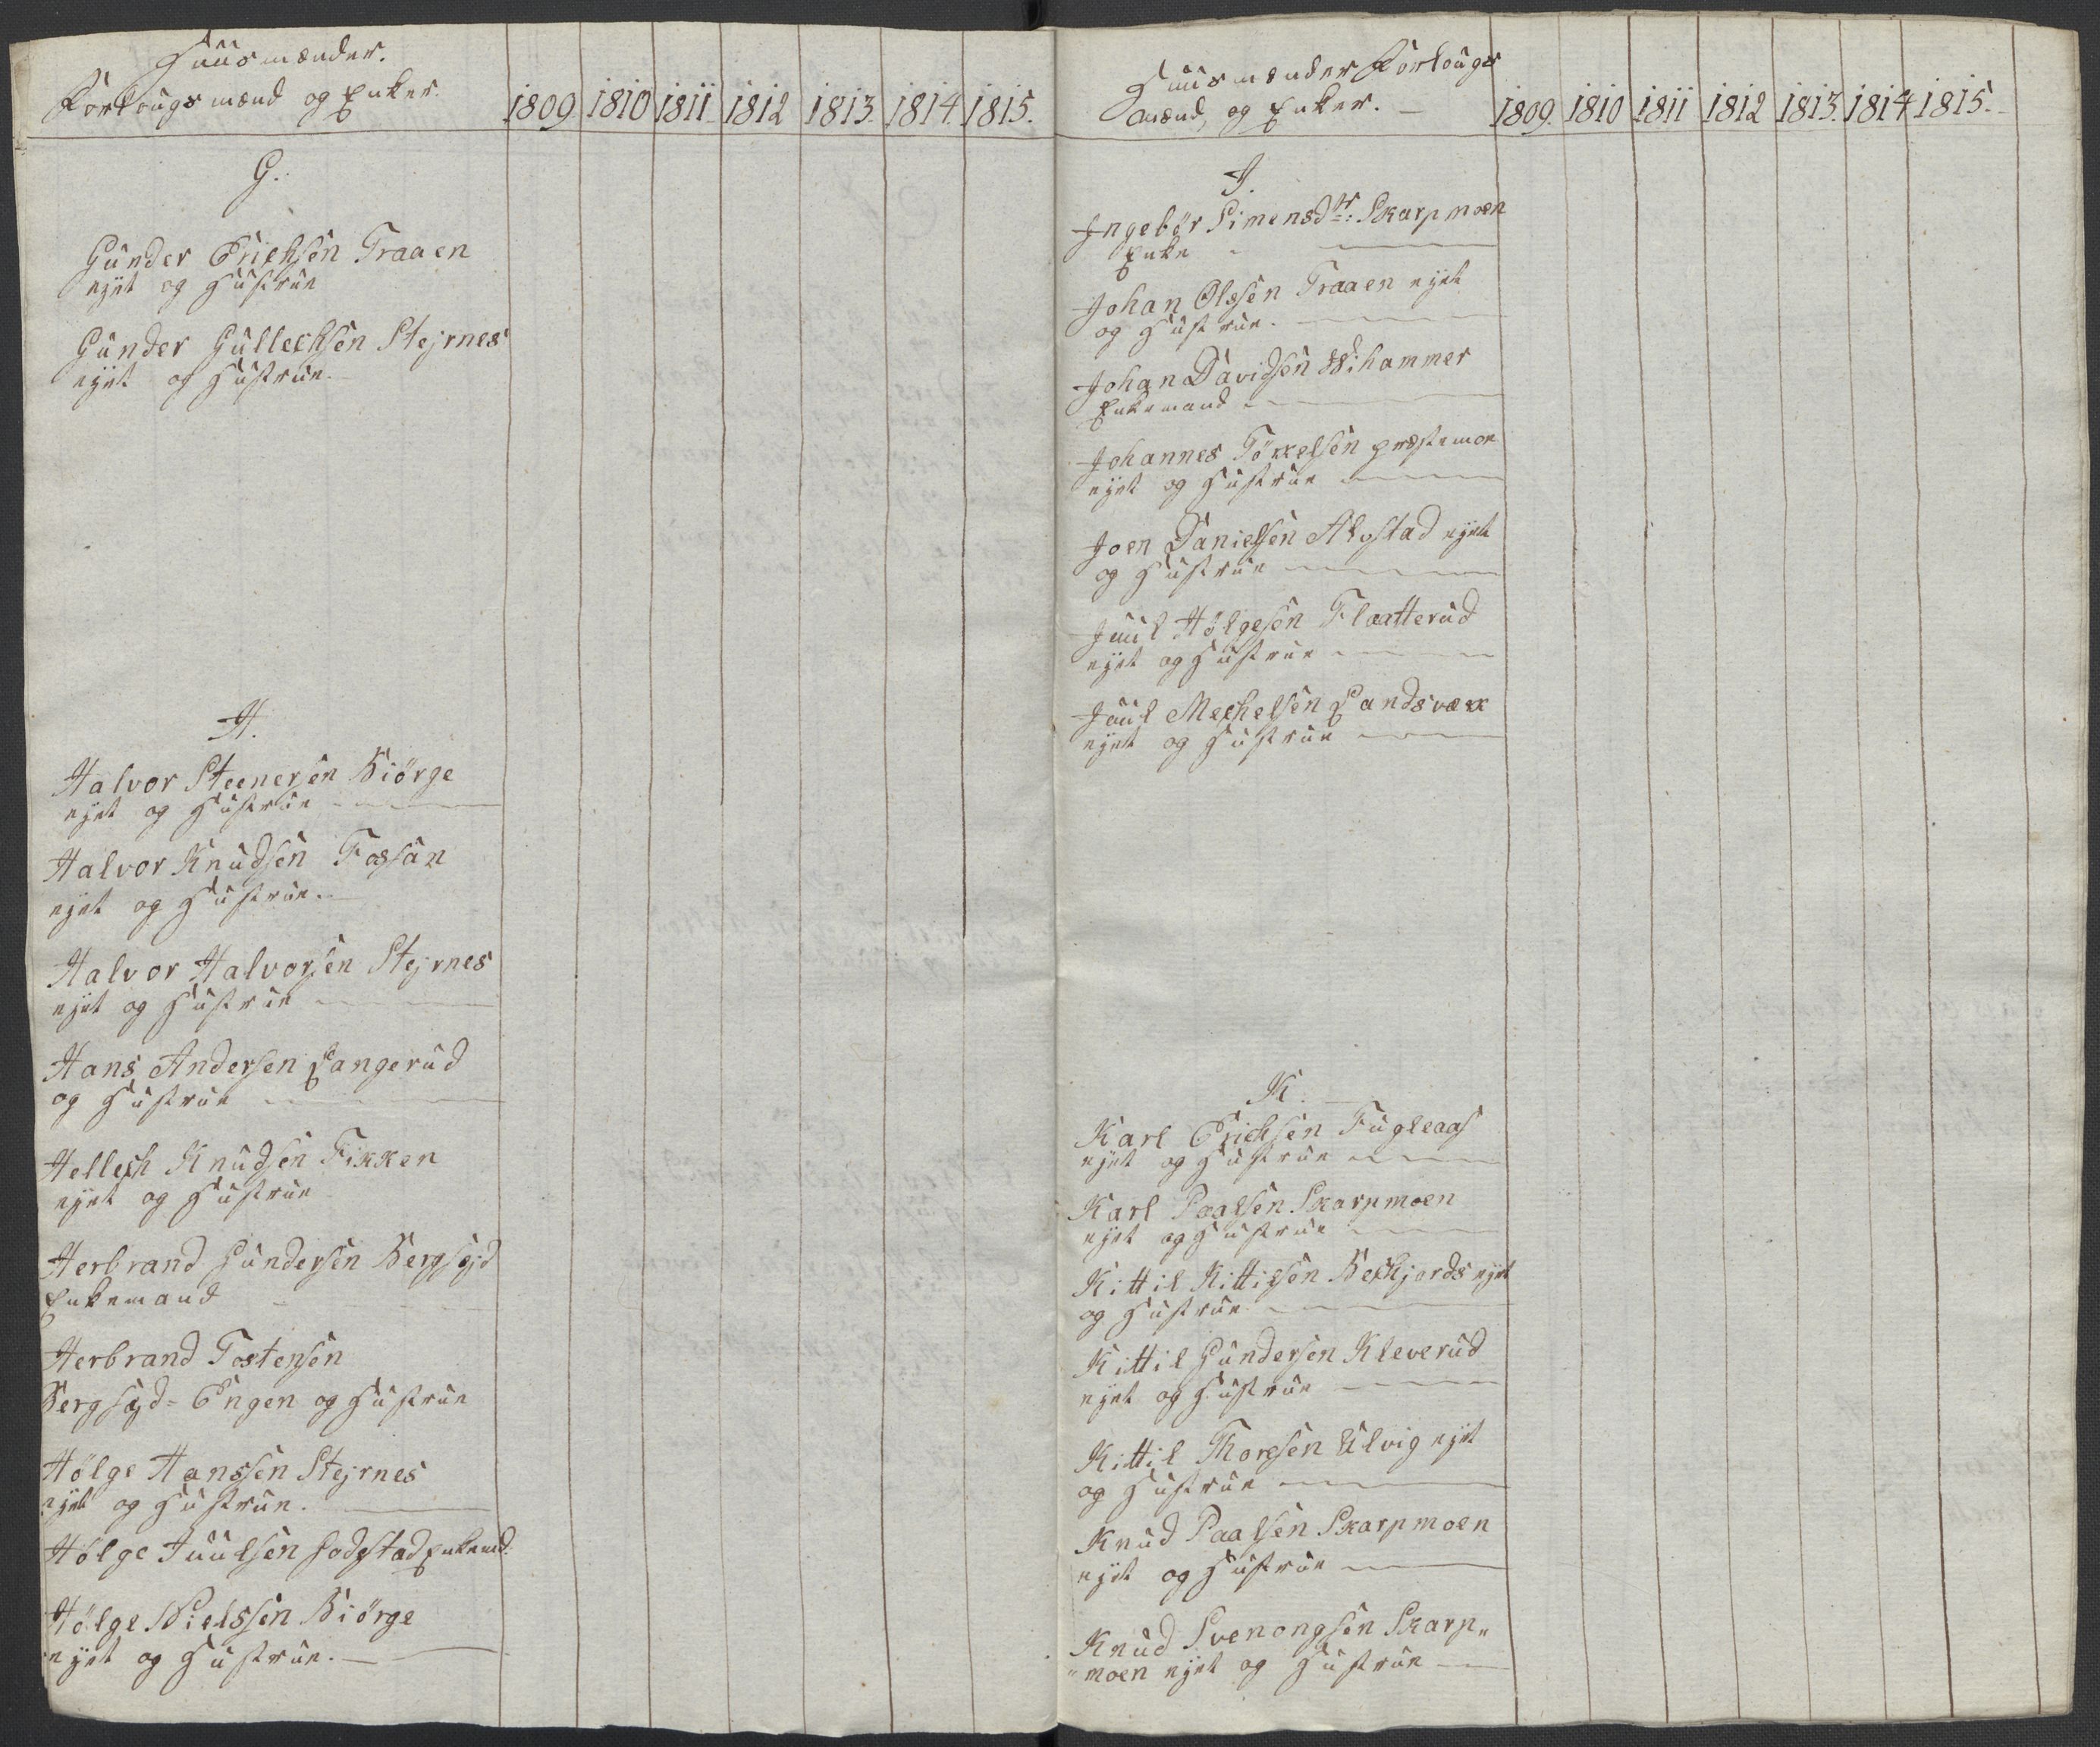 Huusmænder.
Forlougsmænd og Enker.
1809. 1810 1811 1812 1813. 1814. 1815.
G.
Gunder Erichsen Traaen
ejet og Hustrue
Gunder Gullechsen Stejrnes
ejet og Hustrue.
H.
Halvor Steenersen Biörge
ejet og Hustrue
Halvor Knudsen Fossan
ejet og Hustrue.
Halvor Halvorsen Stejrnes
ejet og Hustrue
Hans Andersen Langerud
og Hustrue
Hellech Knudsen Fikken
ejet og Hustrue
Herbrand Gundersen Bergsejd
Enkemand
Herbrand Tostensen
Bergsejd-Engen og Hustrue
Hölge Hanssen Stejrnes
ejet og Hustrue.
Hölge Juulsen Enkemd.
Hölge Nielssen Biörge
ejet og Hustrue.
Huusmænder Forlougs
mænd, og Enker.
1809. 1810 1811 1812 1813. 1814 1815.
J.
Ingebör Simensdtr: Skarpmoen
Enke
Johan Olssen Traaen ejet
og Hustrue.
Johan Davidsen Wihammer
Enkemand
Johannes Törkelsen Præstemoe
ejet og Hustrue
Joen Danielsen Alvstad ejet
og Hustrue
Juul Hölgesen Flaatterud
ejet og Hustrue
Juul Mechelsen Landsværk
ejet og Hustrue
K.
Karl Erichsen Fugleaas
ejet og Hustrue
Karl Paalsen Skarpmoen
ejet og Hustrue
Kittil Kittilsen Bechjords ejet
og Hustrue
Kittil Gundersen Kleverud
ejet og Hustrue
Kittil Thoresen Ulvig ejet
og Hustrue
Knud Paalsen Skarpmoen
ejet og Hustrue
Knud Svenongsen Skarp„
„moen ejet og Hustrue